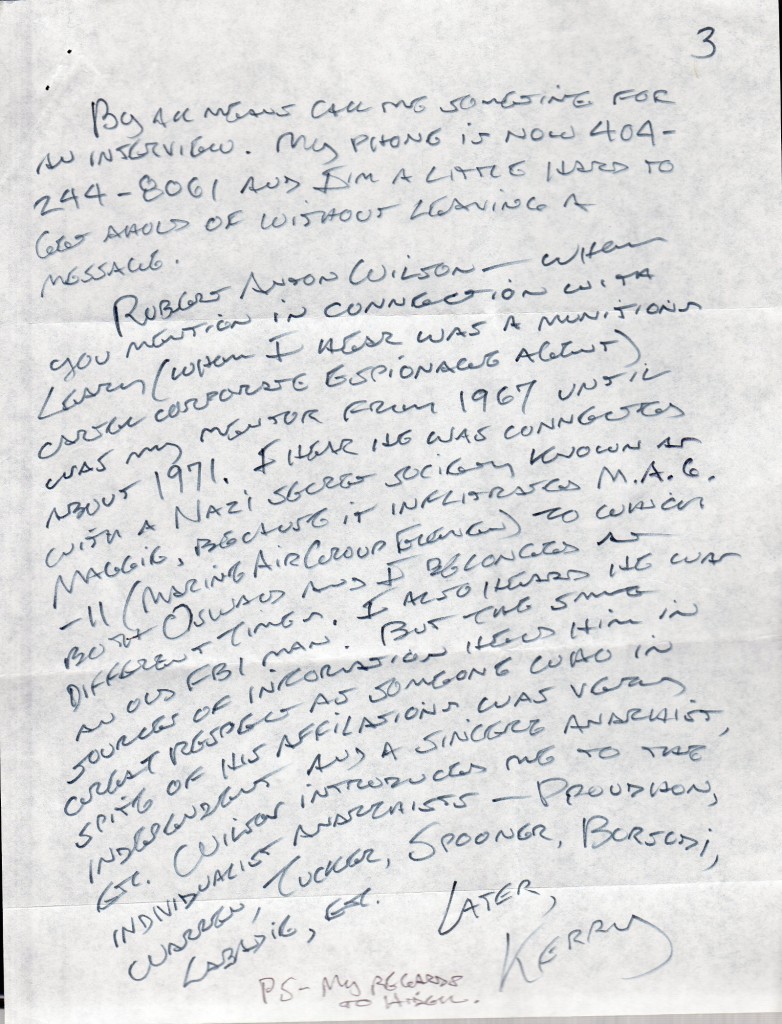 3
By all means call me sometime for
an interview. My phone is now 404-
244-8061 and I'm a little hard to
get ahold of without leaving a
message.
Robert Anton Wilson — whom
you mention in connection with
Leary (whom I hear was a munitions
cartel corporate espionage agent)
was my mentor from 1967 until
about 1971. I hear he was connected
with a Nazi secret society known as
Maggie, because it infiltrated M.A.G.
-11 (Marine Air Group Eleven) to which
both Oswald and I belonged at
different times. I also heard he was
an old FBI man. But the same
sources of information held him in
great respect as someone who in
spite of his affilations was very
independent and a sincere anarchist,
etc. Wilson introduced me to the
individualist anarchists — Proudhon,
Warren, Tucker, Spooner, Borsodi,
Labadie, etc.
Later,
Kerry
PS- My regards
to